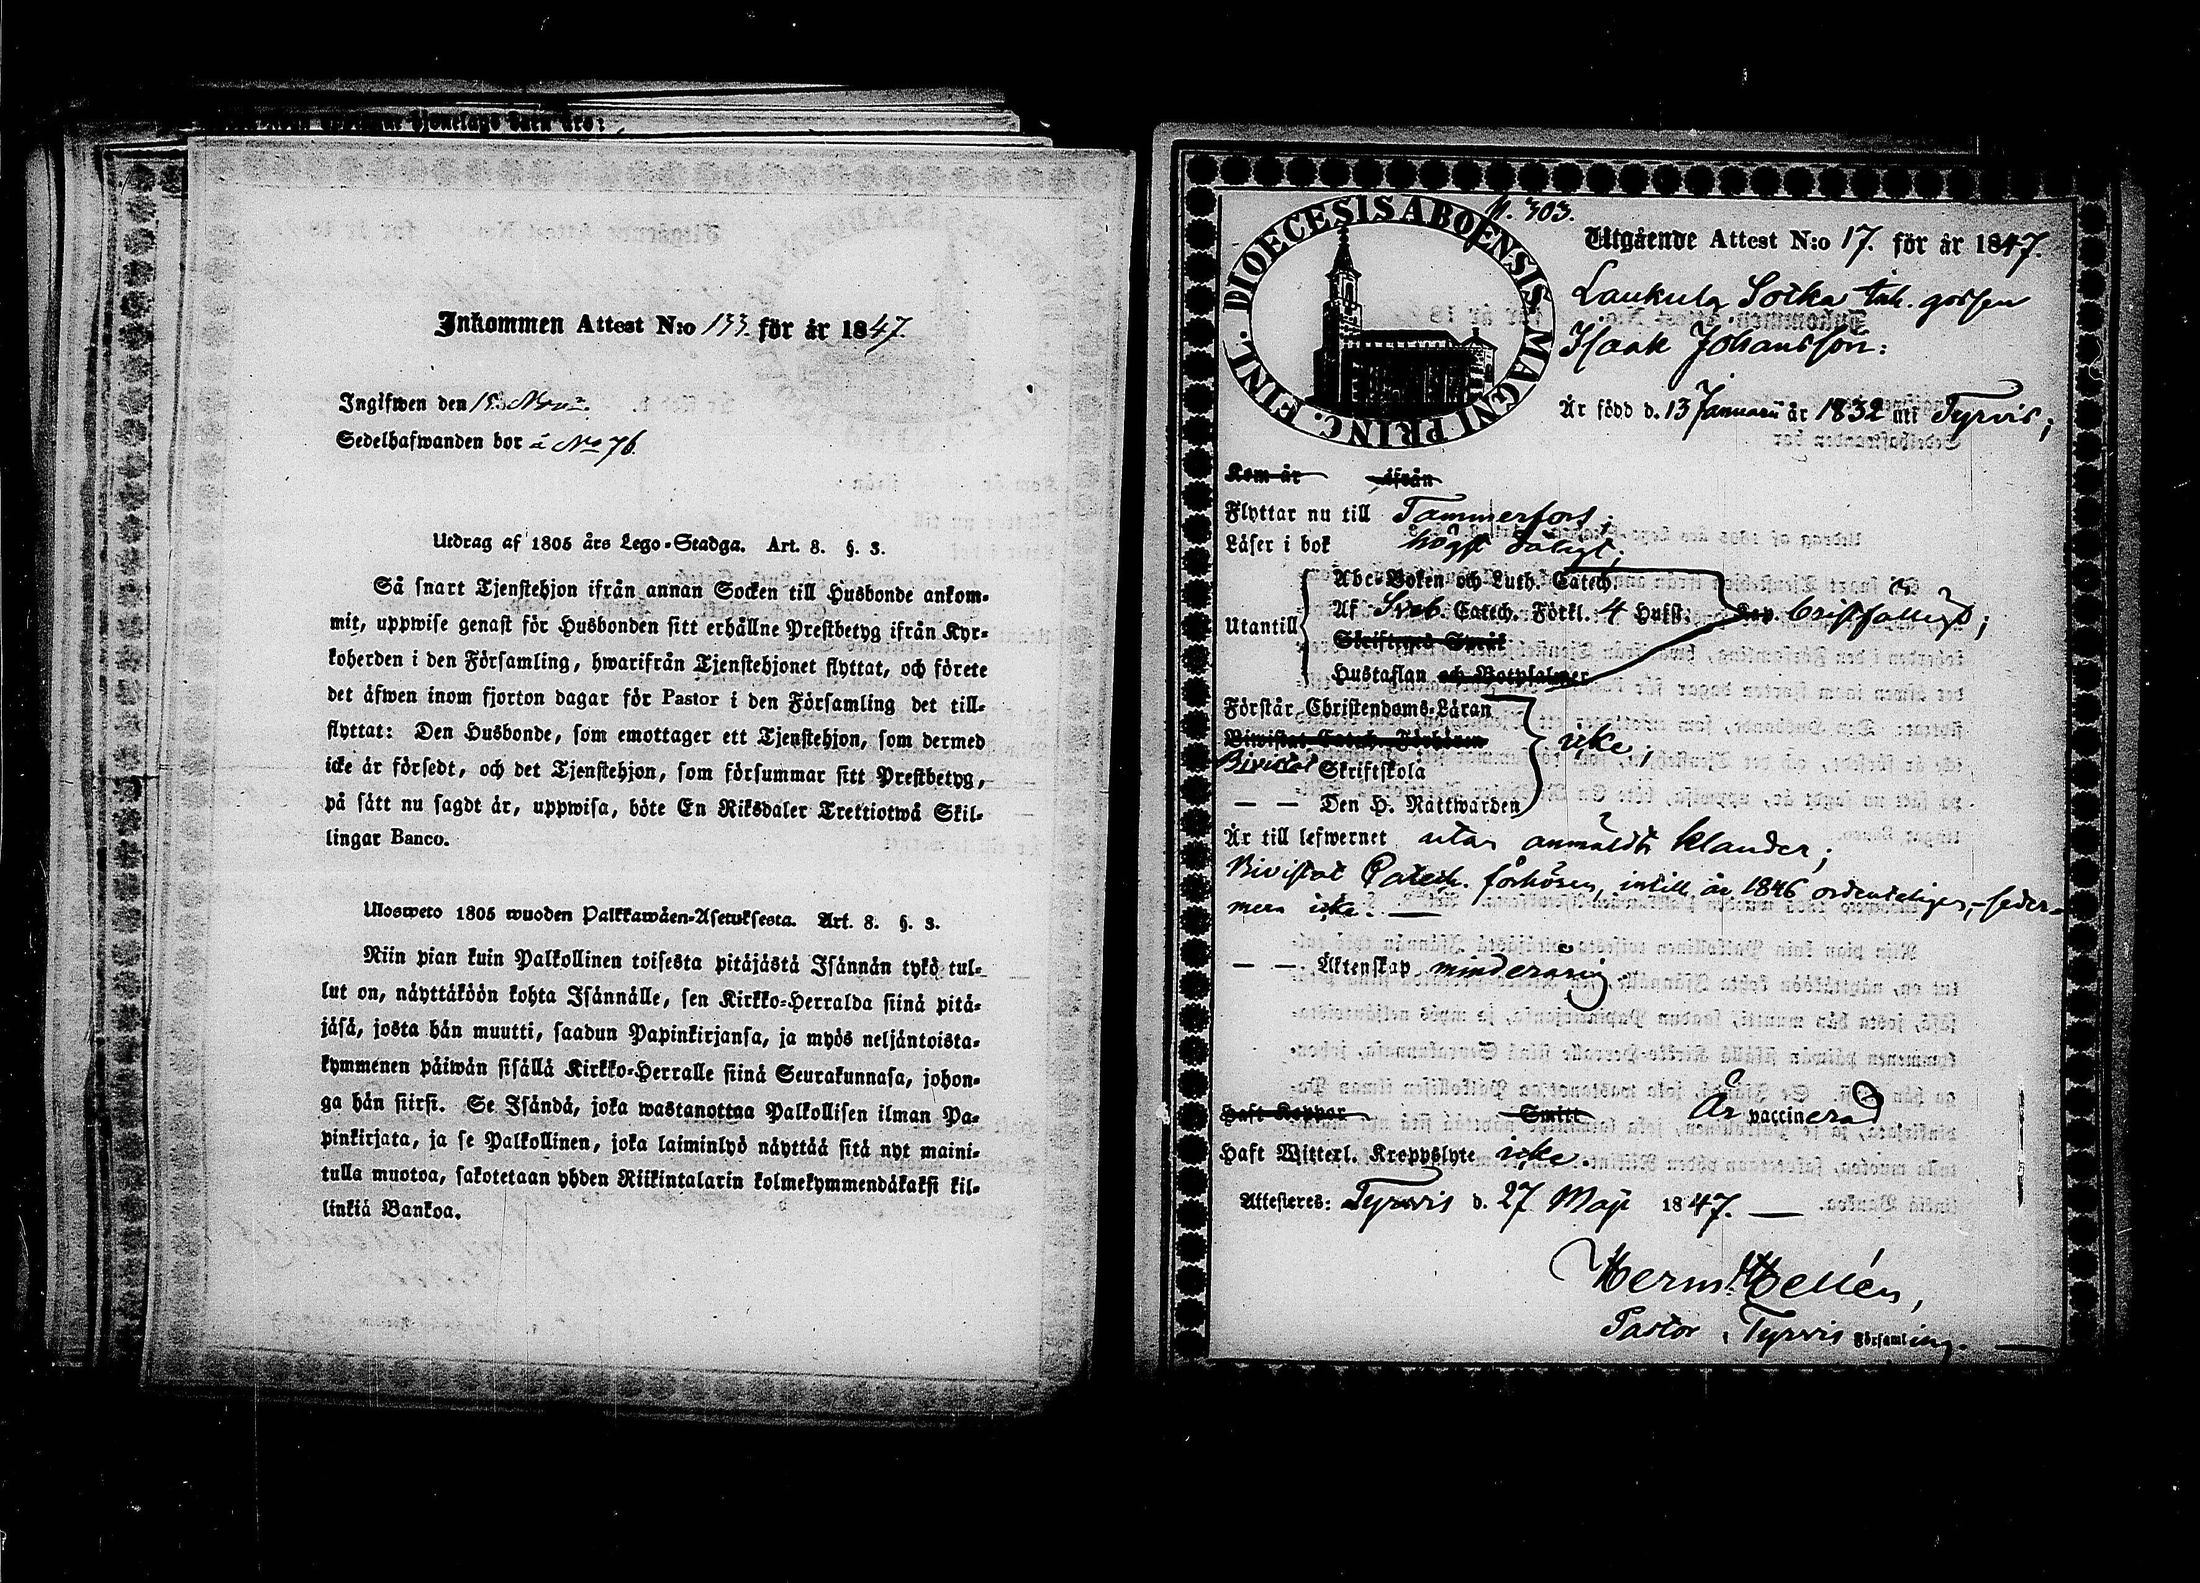 Inkommen Attest N:o 133. för år 1847.
Ingifwen den Nov.
Sedelhafwanden bor å No 76.
Utdrag af 1805 års Lego-Stadga. Art. 8. §. 3.
Så snart Tjenstehjon ifrån annan Socken till Husbonde ankom-
mit, uppwise genast för Husbonden sitt erhållne Prestbetyg ifrån Kyr-
koherden i den Församling, hwarifrån Tjenstehjonet flyttat, och förete
det äfwen inom fjorton dagar för Pastor i den Församling det till-
flyttat: Den Husbonde, som emottager ett Tjenstehjon, som dermed
icke är försedt, och det Tjenstehjon, som försummar sitt Prestbetyg,
på sätt nu sagdt är, uppwisa, böte En Riksdaler Trettiotwå Skil-
lingar Banco.
Ulosweto 1805 wuoden Palkkawäen-Asetuksesta. Art. 8. §. 3.
Niin pian kuin Palkollinen toisesta pitäjästä Isännän tykö tul-
lut on, näyttäköön kohta Isännälle, sen Kirkko-Herralda siinä pitä-
jäsä, josta hän muutti, saadun Papinkirjansa, ja myös neljäntoista-
kymmenen päiwän sisällä Kirkko-Herralle siinä Seurakunnasa, johon-
ga hän siirsi. Se Isändä, joka wastanottaa Palkollisen ilman Pa-
pinkirjata, ja se Palkollinen, joka laiminlyö näyttää sitä nyt maini-
tulla muotoa, sakotetaan yhden Riikintalarin kolmekymmendäkaksi kil-
linkiä Bankoa.
DIOECESIS ABOËNSIS MAGNI PRINC. FINL.
p. 303.
Utgående Attest N:o 17. för år 1847.
Laukula Sotka inh. gossen
Isaak Johansson:
Är född d. 13 Januarii år 1832 uti Tyrvis;
Kom år ifrån
Flyttar nu till Tammerfors;
Läser i bok högst dåligt;
Utantill
Abc-Boken och Luth. Catech.
Af Sveb. Catech. Förkl. 4 Hufst. Kap. bristfälligt;
Skriftenes Språk
Hustaflan och Botpsalmer
Förstår Christendoms-Läran
Biwistat Catech. Förhören icke;
Bivistat Skriftskola
— — Den H. Nattwarden
Är till lefwernet utan anmäldt klander;
Bivistat Catech. förhören, intill år 1846 ordentligen, seder-
mera icke. —
— — Äktenskap minderårig.
Haft Koppor Smitt Är vaccinerad
Haft Witterl. Kroppslyte icke
Attesteres: Tyrvis d. 27 Maji 1847. —
Herm. Hellén,
Pastor i Tyrvis Församling.